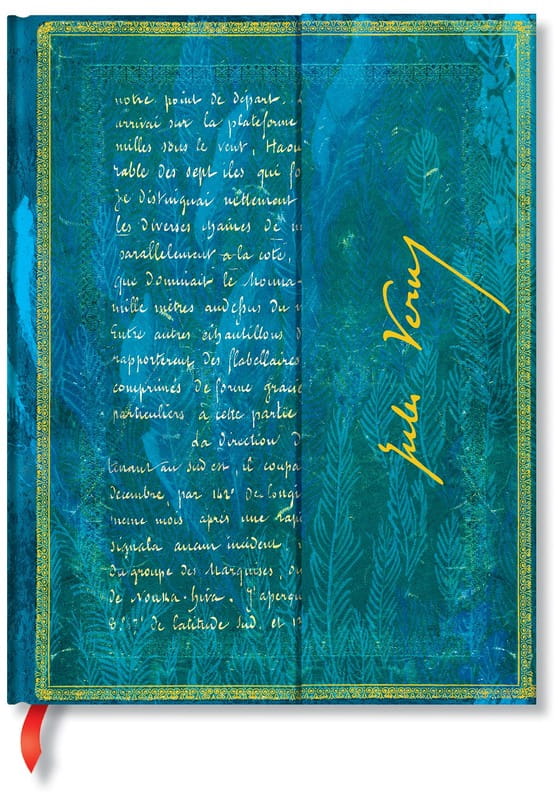 notre point de départ.
arrivai sur la plateforme
milles sous le vent, Haou
rable des sept iles qui fo
Je distinguai nettement
les diverses chaines de m
parallèlement a la côte,
que dominait le Mouna-
mille mètres au dessus du n
Entre autres échantillons d
rapportèrent des flabellaires
comprimés de forme gracie
particuliers à cette partie
La direction d
tenant au sud est, il coupa
Decembre, par 142° de longi
meme mois après une rapi
signala aucun incident,
du groupe des Marquises, ou
de Nouka-hiva. J'aperçu
8° 7' de latitude sud. et 13
Jules Verne